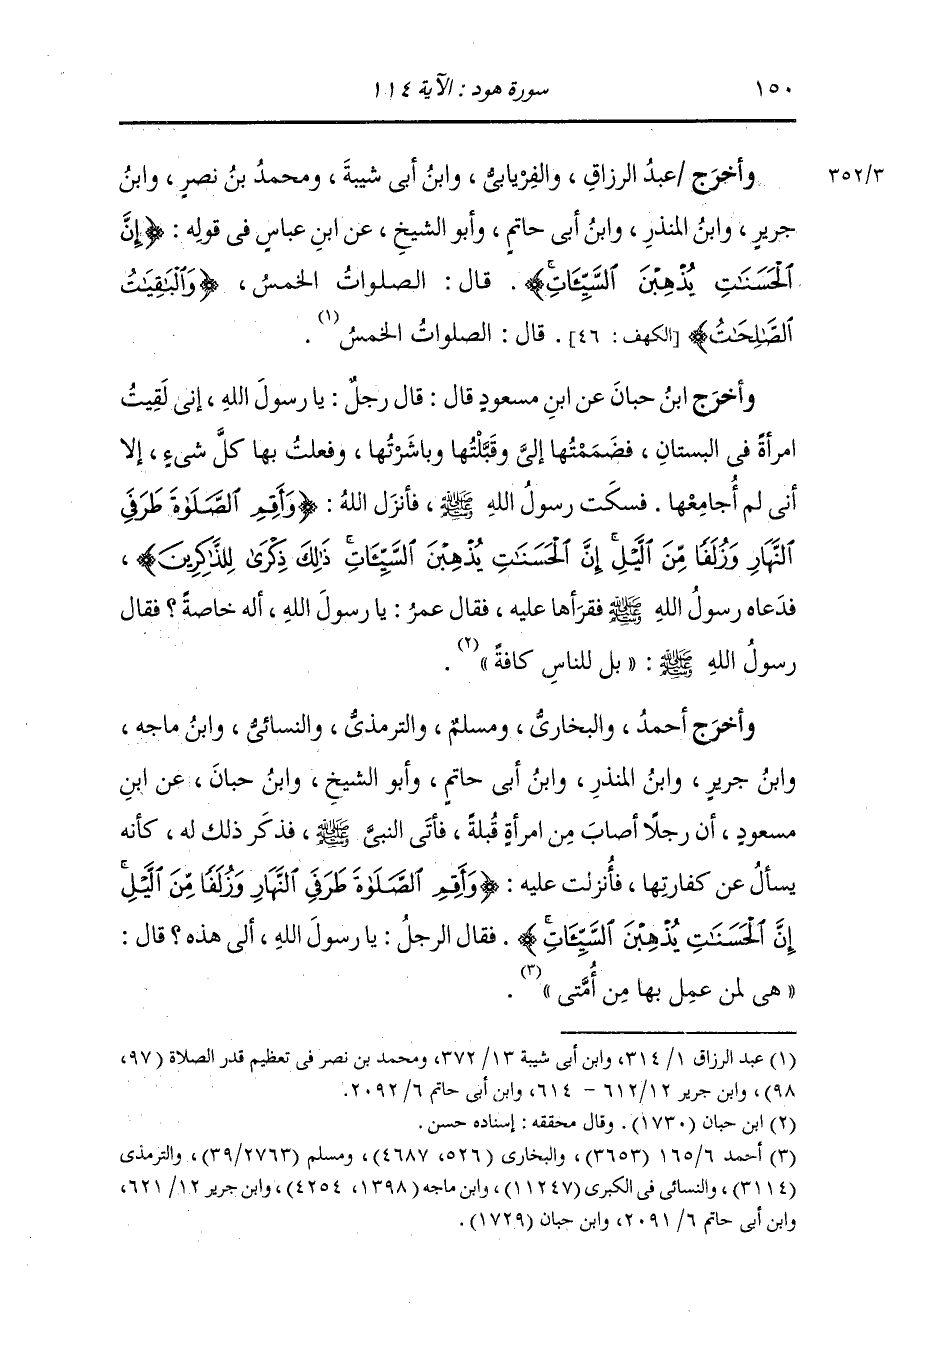 ١٥٠
سورة هود : الآية ١١٤
٣٥٢/٣
وأخرَج /عبدُ الرزاقِ ، والفِرْيابىُّ ، وابنُ أبى شيبةَ ، ومحمدُ بنُ نصرٍ ، وابنُ
جريرٍ ، وابنُ المنذرِ ، وابنُ أبى حاتمٍ ، وأبو الشيخِ ، عن ابنِ عباسٍ فى قولِه : ﴿إِنَّ
ٱلْحَسَنَٰتِ يُذْهِبْنَ ٱلسَّيِّـَٔاتِۚ﴾ . قال : الصلواتُ الخمسُ ، ﴿وَٱلْبَٰقِيَٰتُ
ٱلصَّٰلِحَٰتُ﴾ [الكهف : ٤٦] . قال : الصلواتُ الخمسُ(١) .
وأخرَج ابنُ حبانَ عن ابنِ مسعودٍ قال : قال رجلٌ : يا رسولَ اللهِ ، إنى لَقِيتُ
امرأةً فى البستانِ ، فضَمَمْتُها إلىَّ وقَبَّلْتُها وباشَرْتُها ، وفعلتُ بها كلَّ شىءٍ ، إلا
أنى لم أُجامِعْها . فسكَت رسولُ اللهِ ﷺ ، فأنزَل اللهُ : ﴿وَأَقِمِ ٱلصَّلَوٰةَ طَرَفَىِ
ٱلنَّهَارِ وَزُلَفًا مِّنَ ٱلَّيْلِۚ إِنَّ ٱلْحَسَنَٰتِ يُذْهِبْنَ ٱلسَّيِّـَٔاتِۚ ذَٰلِكَ ذِكْرَىٰ لِلذَّٰكِرِينَ﴾ ،
فدَعاه رسولُ اللهِ ﷺ فقرَأها عليه ، فقال عمرُ : يا رسولَ اللهِ ، أله خاصةً ؟ فقال
رسولُ اللهِ ﷺ : « بل للناسِ كافةً »(٢) .
وأخرَج أحمدُ ، والبخارىُّ ، ومسلمٌ ، والترمذىُّ ، والنسائىُّ ، وابنُ ماجه ،
وابنُ جريرٍ ، وابنُ المنذرِ ، وابنُ أبى حاتمٍ ، وأبو الشيخِ ، وابنُ حبانَ ، عن ابنِ
مسعودٍ ، أن رجلًا أصابَ مِن امرأةٍ قُبلةً ، فأتَى النبىَّ ﷺ ، فذكَر ذلك له ، كأنه
يسألُ عن كفارتِها ، فأُنزلت عليه : ﴿وَأَقِمِ ٱلصَّلَوٰةَ طَرَفَىِ ٱلنَّهَارِ وَزُلَفًا مِّنَ ٱلَّيْلِۚ
إِنَّ ٱلْحَسَنَٰتِ يُذْهِبْنَ ٱلسَّيِّـَٔاتِۚ﴾ . فقال الرجلُ : يا رسولَ اللهِ ، ألى هذه ؟ قال :
« هى لمن عمِل بها مِن أُمَّتى »(٣) .
(١) عبد الرزاق ١/ ٣١٤، وابن أبى شيبة ١٣/ ٣٧٢، ومحمد بن نصر فى تعظيم قدر الصلاة (٩٧،
٩٨) ، وابن جرير ٦١٢/١٢ - ٦١٤، وابن أبى حاتم ٦/ ٢٠٩٢.
(٢) ابن حبان (١٧٣٠) . وقال محققه : إسناده حسن .
(٣) أحمد ١٦٥/٦ (٣٦٥٣) ، والبخارى (٥٢٦، ٤٦٨٧) ، ومسلم (٣٩/٢٧٦٣) ، والترمذى
(٣١١٤) ، والنسائى فى الكبرى (١١٢٤٧) ، وابن ماجه (١٣٩٨، ٤٢٥٤) ، وابن جرير ١٢/ ٦٢١،
وابن أبى حاتم ٦/ ٢٠٩١، وابن حبان (١٧٢٩) .